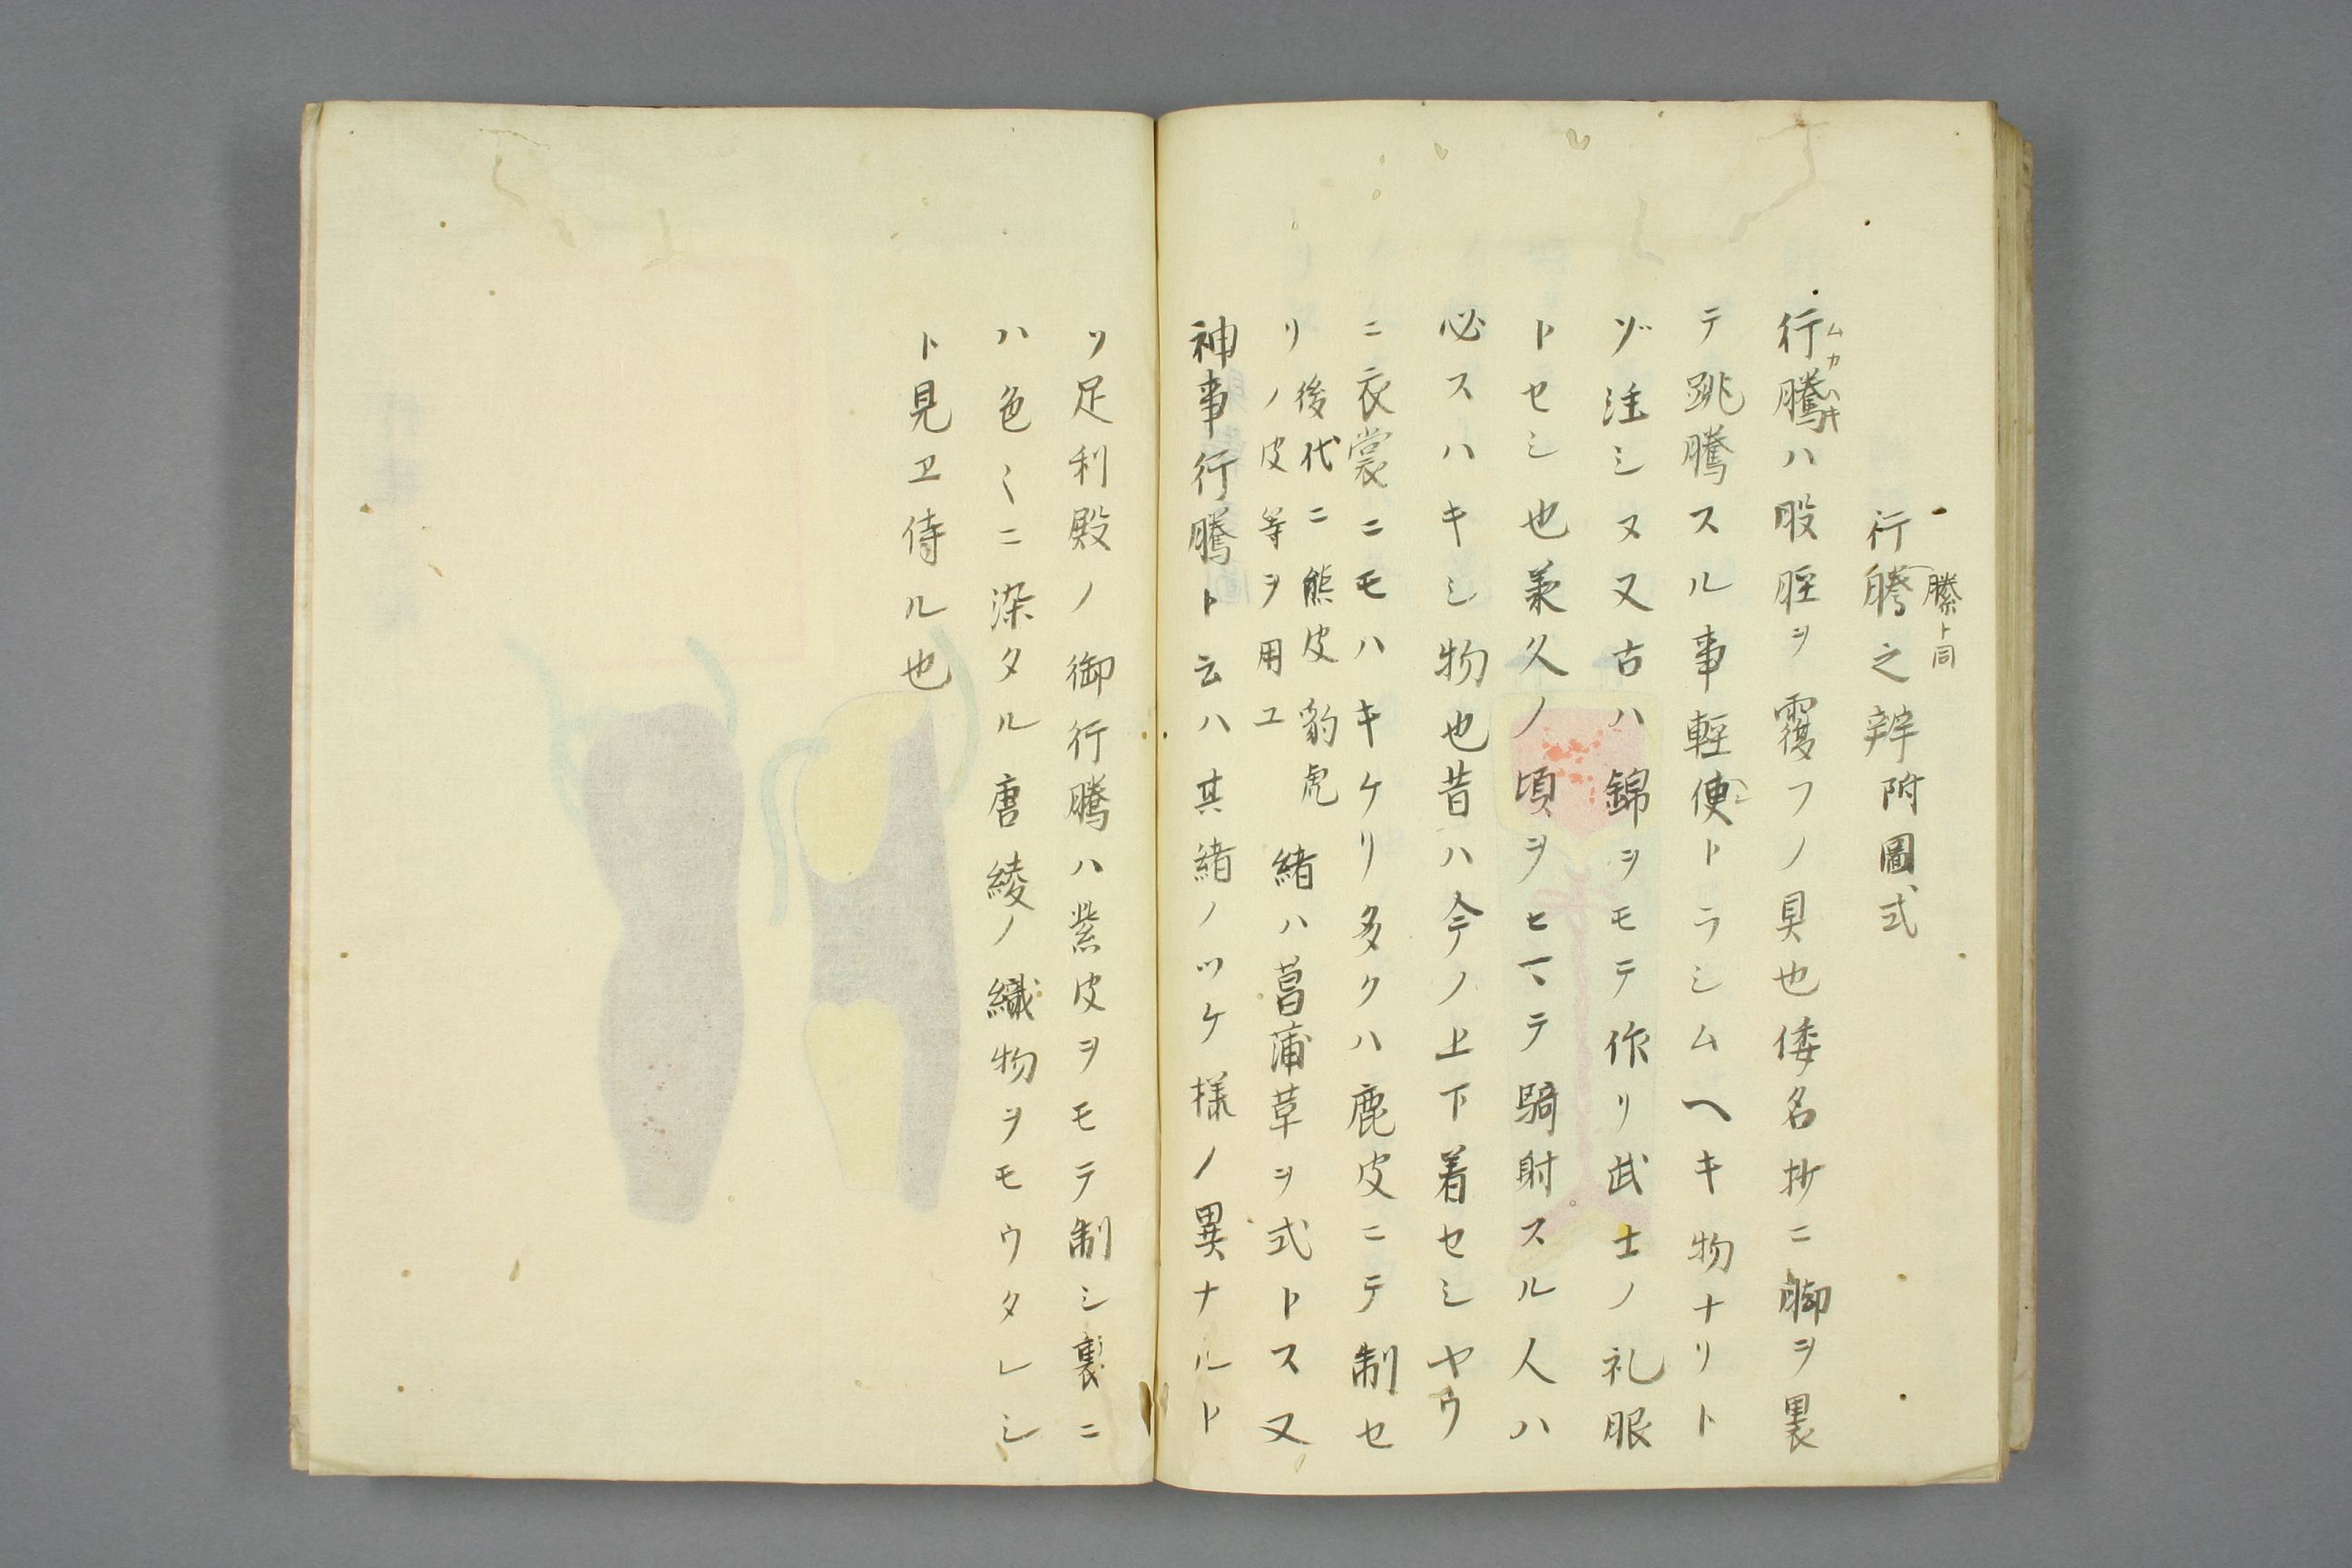 行謄之辨附圖式
縢ト同
行騰ハ股脛ヲ覆フノ具也倭名抄ニ脚ヲ裹
ムカハキ
テ跳騰スル事輕便トラシムヘキ物ナリト
ゾ注シヌ又古ハ錦ヲモテ作リ武士ノ礼服
トセシ也承久ノ頃ヲヒマテ騎射スル人ハ
必スハキシ物也昔ハ今ノ上下着セシヤウ
ニ衣裳ニモハキケリ多クハ鹿皮ニテ制セ
リ後代ニ熊皮豹虎ノ皮等ヲ用ユ緒ハ菖蒲革ヲ式トス又
神事行騰ト云ハ其緒ノツケ様ノ異ナルト
ツ足利殿ノ御行騰ハ紫皮ヲモテ制シ裏ニ
ハ色〱ニ染タル唐綾ノ織物ヲモウタレシ
ト見ヱ侍ル也